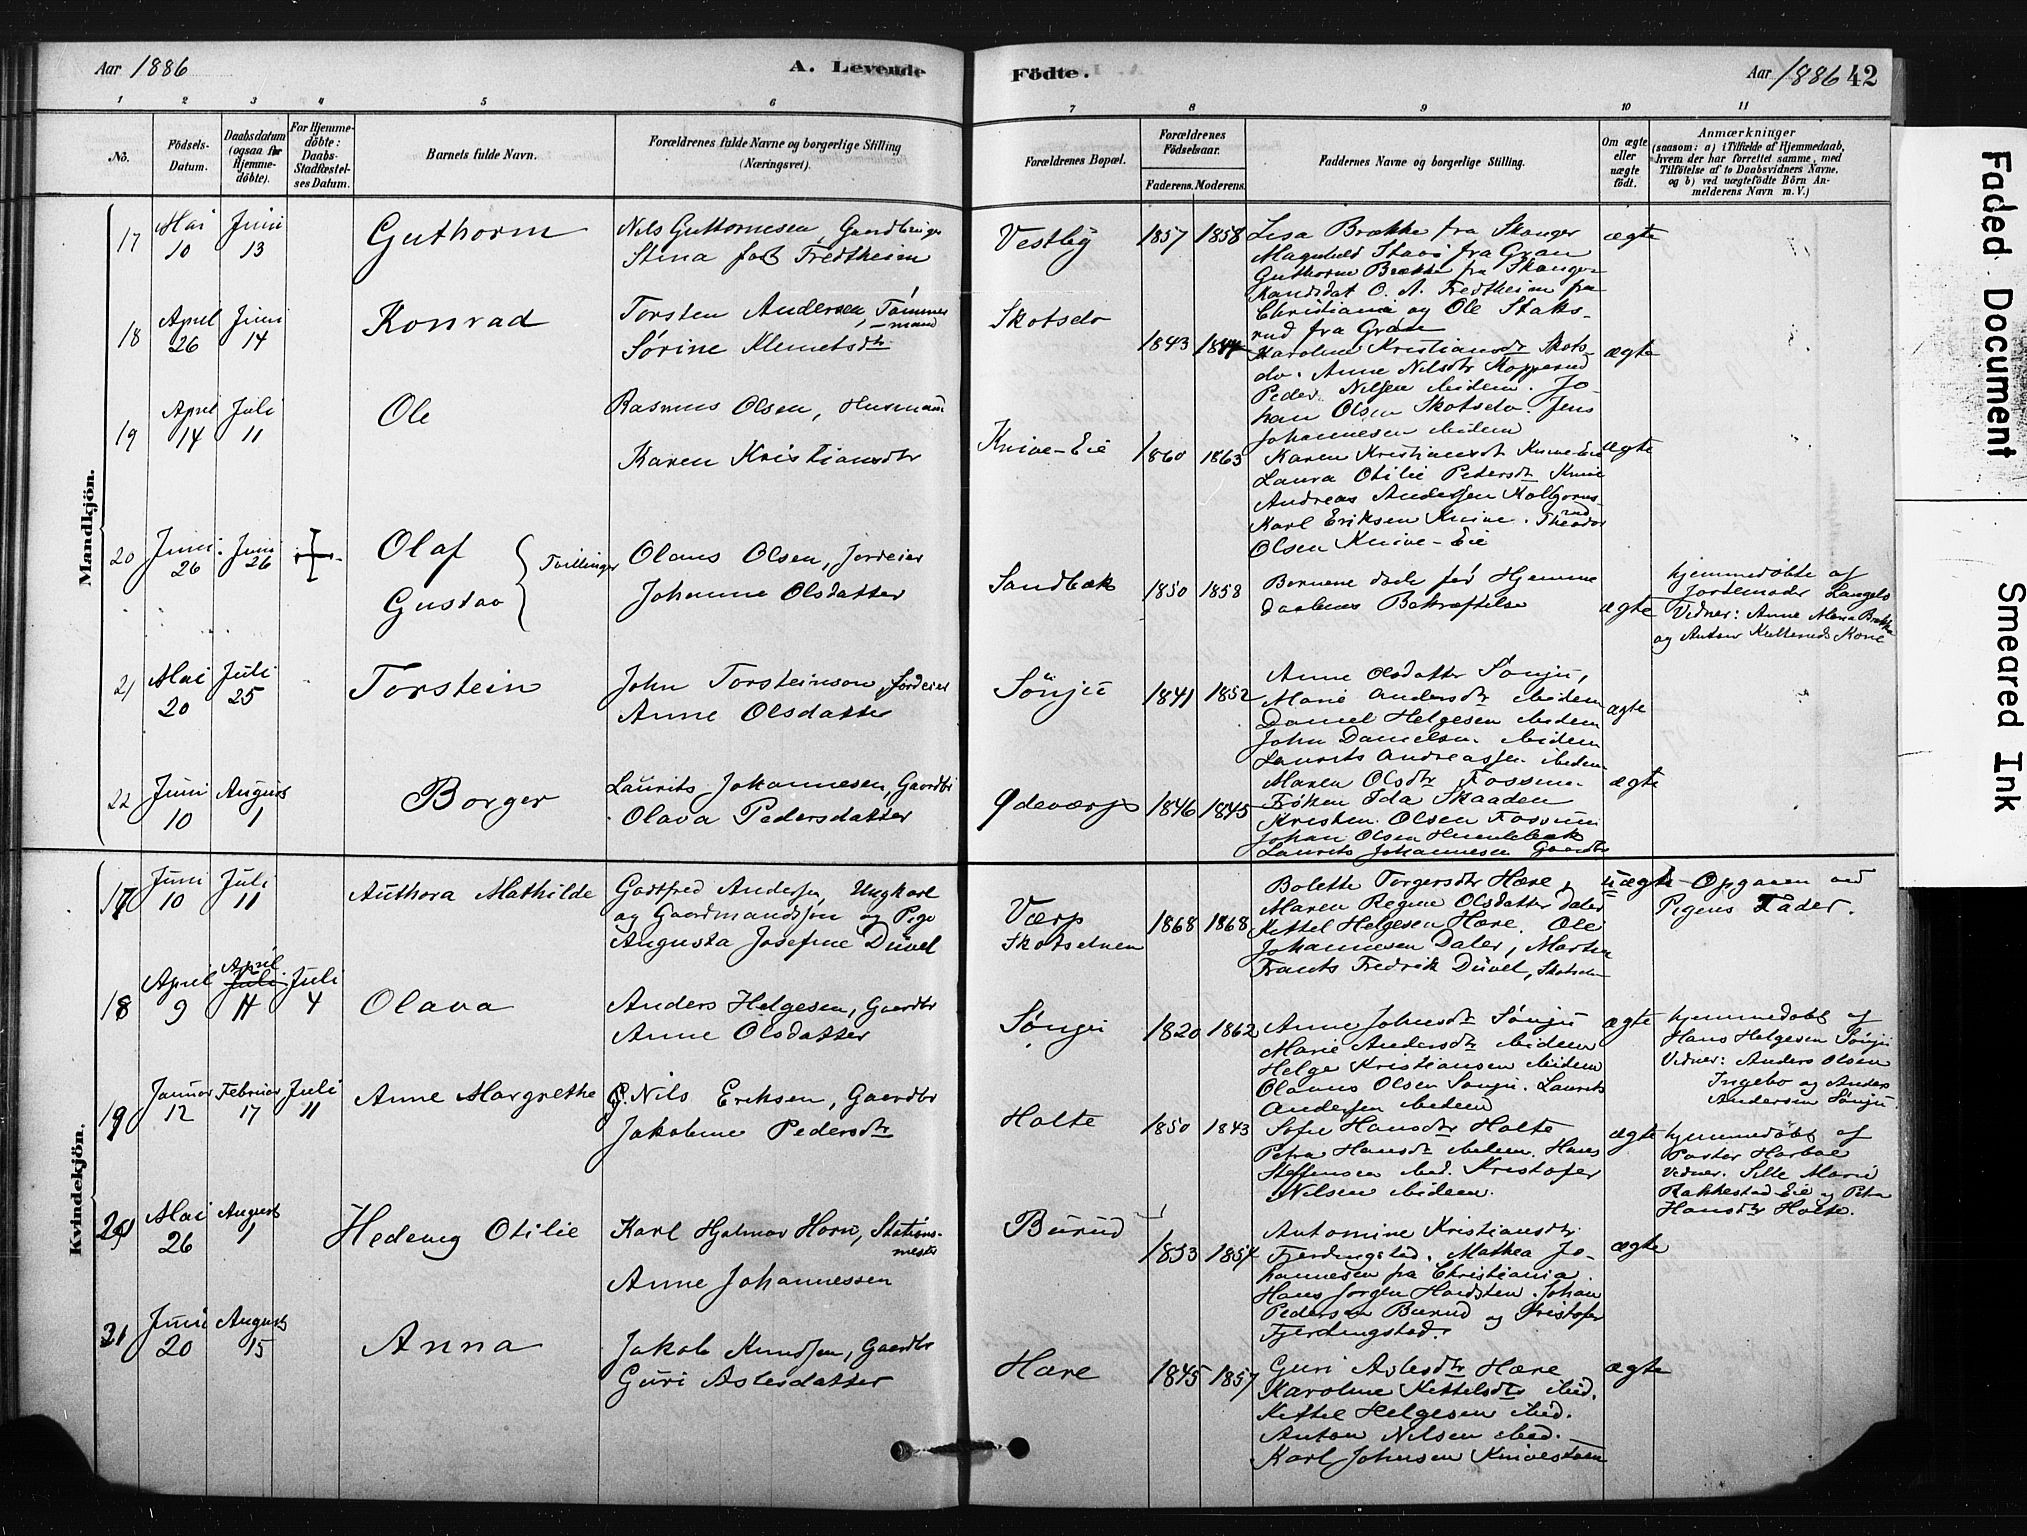 Aar 1886
A. Levende
Födte.
Aar 1886 42
1 2 3 4 5 6 7 8 9 10 11
No.
Födsels-
Datum.
Daabsdatum
(ogsaa for
Hjemme-
döbte).
For Hjemme-
döbte:
Daabs-
Stadfæstel-
ses Datum.
Barnets fulde Navn.
Forældrenes fulde Navne og borgerlige Stilling
(Næringsvei).
Forældrenes Bopæl.
Forældrenes
Födselsaar.
Faderens. Moderens.
Faddernes Navne og borgerlige Stilling.
Om ægte
eller
uægte
födt.
Anmærkninger
(saasom: a) i Tilfælde af Hjemmedaab,
hvem der har forrettet samme, med
Tilföielse af to Daabsvidners Navne,
og b) ved uægtefödte Börn An-
melderens Navn m. V.)
Mandkjön.
17 Mai 10 Juni 13
Guthorm
Nils Guttormesen Gaardbruger
Stina født Fredtheim
Vestby 1857 1858
Lisa Brække fra Skauger
Magnhild Staxs fra Gran
Guthorm Brække fra Skauger
Kandidat O. A. Fredtheim fra
Christiania og Ole Staks-
rud fra Gran
ægte
18 April 26 Juni 14
Konrad
Torsten Andersen, Tømmer-
mand
Sørine Klemetsdtr
Skotselv 1843 1844
Karoline Kristiansdtr Skots-
elv. Anne Nilsdtr Kopperud
Peder Nilsen ibidem. Jo-
han Olsen Skotselv. Jens
Johannesen ibidem
ægte
19 April 14 Juli 11
Ole
Rasmus Olsen, Husmand
Karen Kristiansdtr
Knive-Eie 1860 1863
Karen Kristiansdt Knive-Eie
Laura Otilie Pedersdt Knive
Andreas Andersen
Karl Eriksen Knive. Theodor
Olsen Knive-Eie
ægte
20 Juni 26 Juni 26
Olaf
Gustav
Tvillinger
Olaus Olsen, Jordeier
Johanne Olsdatter
Sandbæk 1850 1858
Børnene døde før Hjemme
daabenes Bekræftelse
ægte
hjemmedøbte af
Jordemoder Langelo
Vidner: Anne Maria Brække
og Anton Kulteruds Kone
21 Mai 20 Juli 25
Torstein
John Torsteinson, Jordeier
Anne Olsdatter
Sönju 1841 1852
Anne Olsdatter Sönju,
Marie Andersdtr ibidem
Daniel Helgesen ibidem
John Danielsen ibidem
Laurits Andreassen ibidem
ægte
22 Juni 10 August 1
Borger
Laurits Johannesen, Gaardbr
Olava Pedersdatter
Ødeværp 1846 1845
Maren Olsdtr Fossum.
Frøken Ida Skaaden
Kristen Olsen Fossum
Johan Olsen
Laurits Johannesen Gaardbr
ægte
Kvindekjön.
17 Juni 10 Juli 11
Authora Mathilde
Godtfred Andersen, Ungkarl
og Gaardmandssøn og Pige
Augusta Josefine Düvel
Værp
Skotselven 1868 1868
Bolette Torgersdtr Hære,
Maren Regine Olsdatter Daler
Kittel Helgesen Hære. Ole
Johannesen Daler, Martin
Frants Fredrik Düvel, Skotselv
uægte
Opgaven ved
Pigens Fader.
18 April 9 April Juli 11 Juli 4
Olava
Anders Helgesen, Gaardbr
Anne Olsdatter
Sønju 1820 1862
Anne Johnsdt Sønju
Marie Andersdtr ibidem
Helge Kristiansen ibidem
Olaus Olsen Sønju. Laurits
Andersen ibidem
ægte
hjemmedøbt af
Hans Helgesen Sønju
Vidner: Anders Olsen
Ingebo og Anders
Andersen Sønju.
19 Januar 12 Februar 17 Juli 11
Anne Margrethe
G. Nils Eriksen, Gaardbr
Jakobine Pedersdtr
Holte 1850 1843
Sofie Hansdtr Holte
Petra Hansdt ibidem. Hans
Steffensen ibid. Kristofer
Nilsen ibidem.
ægte
hjemmedøbt af
Pastor Harboe
Vidner. Sille Marie
Rakkestad-Eie og Petra
Hansdtr Holte.
20 Mai 26 August 1
Hedevig Otilie
Karl Hjalmar Horn, Stations-
mester
Anne Johannessen
Burud 1853 1854
Antomine Kristiansdtr
Fjerdingstad. Mathea Jo-
hannesen fra Christiania.
Hans Jørgen Hardsten. Johan
Pedersen Burud og Kristofer
Fjerdingstad.
ægte
21 Juni 20 August 15
Anna
Jakob Knudsen, Gaardbr
Guri Aslesdatter
Hære 1845 1857
Guri Aslesdtr Hære
Karoline Kittelsdtr ibid.
Kittel Helgesen ibid.
Anton Nilsen ibid.
Karl Johnsen Knivestøen
ægte
Faded Document
Smeared Ink